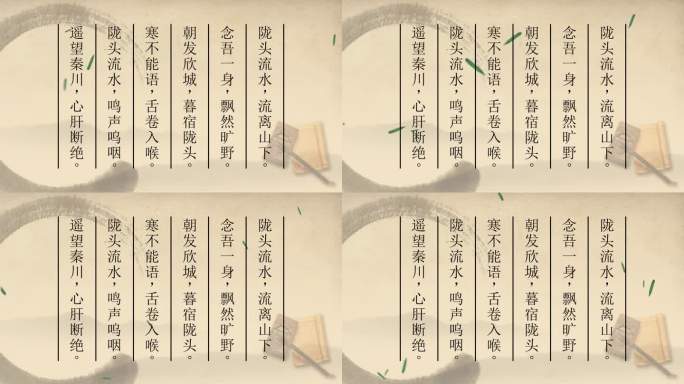 陇头流水，流离山下。
念吾一身，飘然旷野。
朝发欣城，暮宿陇头。
寒不能语，舌卷入喉。
陇头流水，鸣声呜咽。
遥望秦川，心肝断绝。
陇头流水，流离山下。
念吾一身，飘然旷野。
朝发欣城，暮宿陇头。
寒不能语，舌卷入喉。
陇头流水，鸣声呜咽。
遥望秦川，心肝断绝。
陇头流水，流离山下。
念吾一身，飘然旷野。
朝发欣城，暮宿陇头。
寒不能语，舌卷入喉。
陇头流水，鸣声呜咽。
遥望秦川，心肝断绝。
陇头流水，流离山下。
念吾一身，飘然旷野。
朝发欣城，暮宿陇头。
寒不能语，舌卷入喉。
陇头流水，鸣声呜咽。
遥望秦川，心肝断绝。